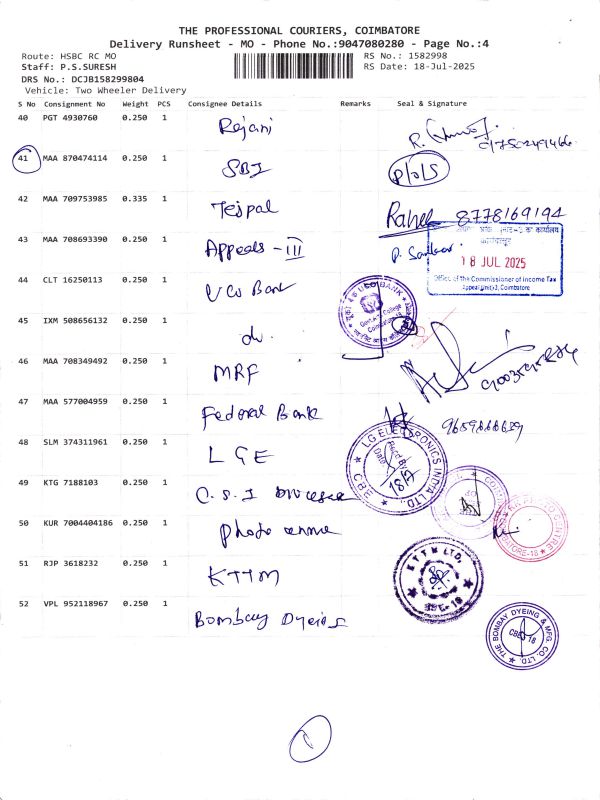 THE PROFESSIONAL COURIERS, COIMBATORE
Delivery Runsheet - MO - Phone No.:9047080280 - Page No.:4
Route: HSBC RC MO RS No.: 1582998
Staff: P.S.SURESH RS Date: 18-Jul-2025
DRS No.: DCJB158299804
Vehicle: Two Wheeler Delivery
S No Consignment No Weight PCS Consignee Details Remarks Seal & Signature
40 PGT 4930760 0.250 1 Rejani
41 MAA 870474114 0.250 1 SBI
42 MAA 709753985 0.335 1 Tejpal Rahel 8778169194
43 MAA 708693390 0.250 1 Appeals - III
18 JUL 2025
Office of the Commissioner of Income Tax
Coimbatore
44 CLT 16250113 0.250 1 UCo Bank
UCO BANK
45 IXM 508656132 0.250 1 do.
46 MAA 708349492 0.250 1 MRF
47 MAA 577004959 0.250 1 Federal Bank
48 SLM 374311961 0.250 1 LGE
LG ELECTRONICS INDIA LTD.
CBE
18/7
49 KTG 7188103 0.250 1 C.S.I
50 KUR 7004404186 0.250 1 photo
51 RJP 3618232 0.250 1 KTTM
K T T M LTD.
CBE-18
52 VPL 952118967 0.250 1 Bombay Dyeing
THE BOMBAY DYEING & MFG CO. LTD.
CBE-18
1